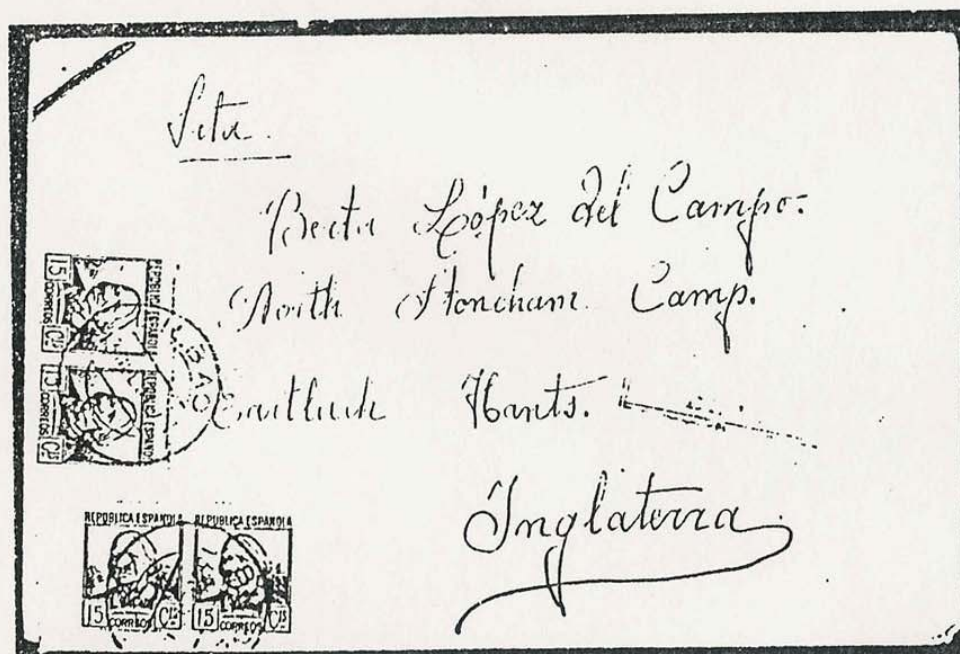 Srta.
Berta López del Campo.
North Stoneham Camp.
Hants.
Inglaterra
REPUBLICA ESPAÑOLA
15 CORREOS Cts
REPUBLICA ESPAÑOLA
15 CORREOS Cts
BAO
REPUBLICA ESPAÑOLA REPUBLICA ESPAÑOLA
15 CORREOS Cts 15 CORREOS Cts